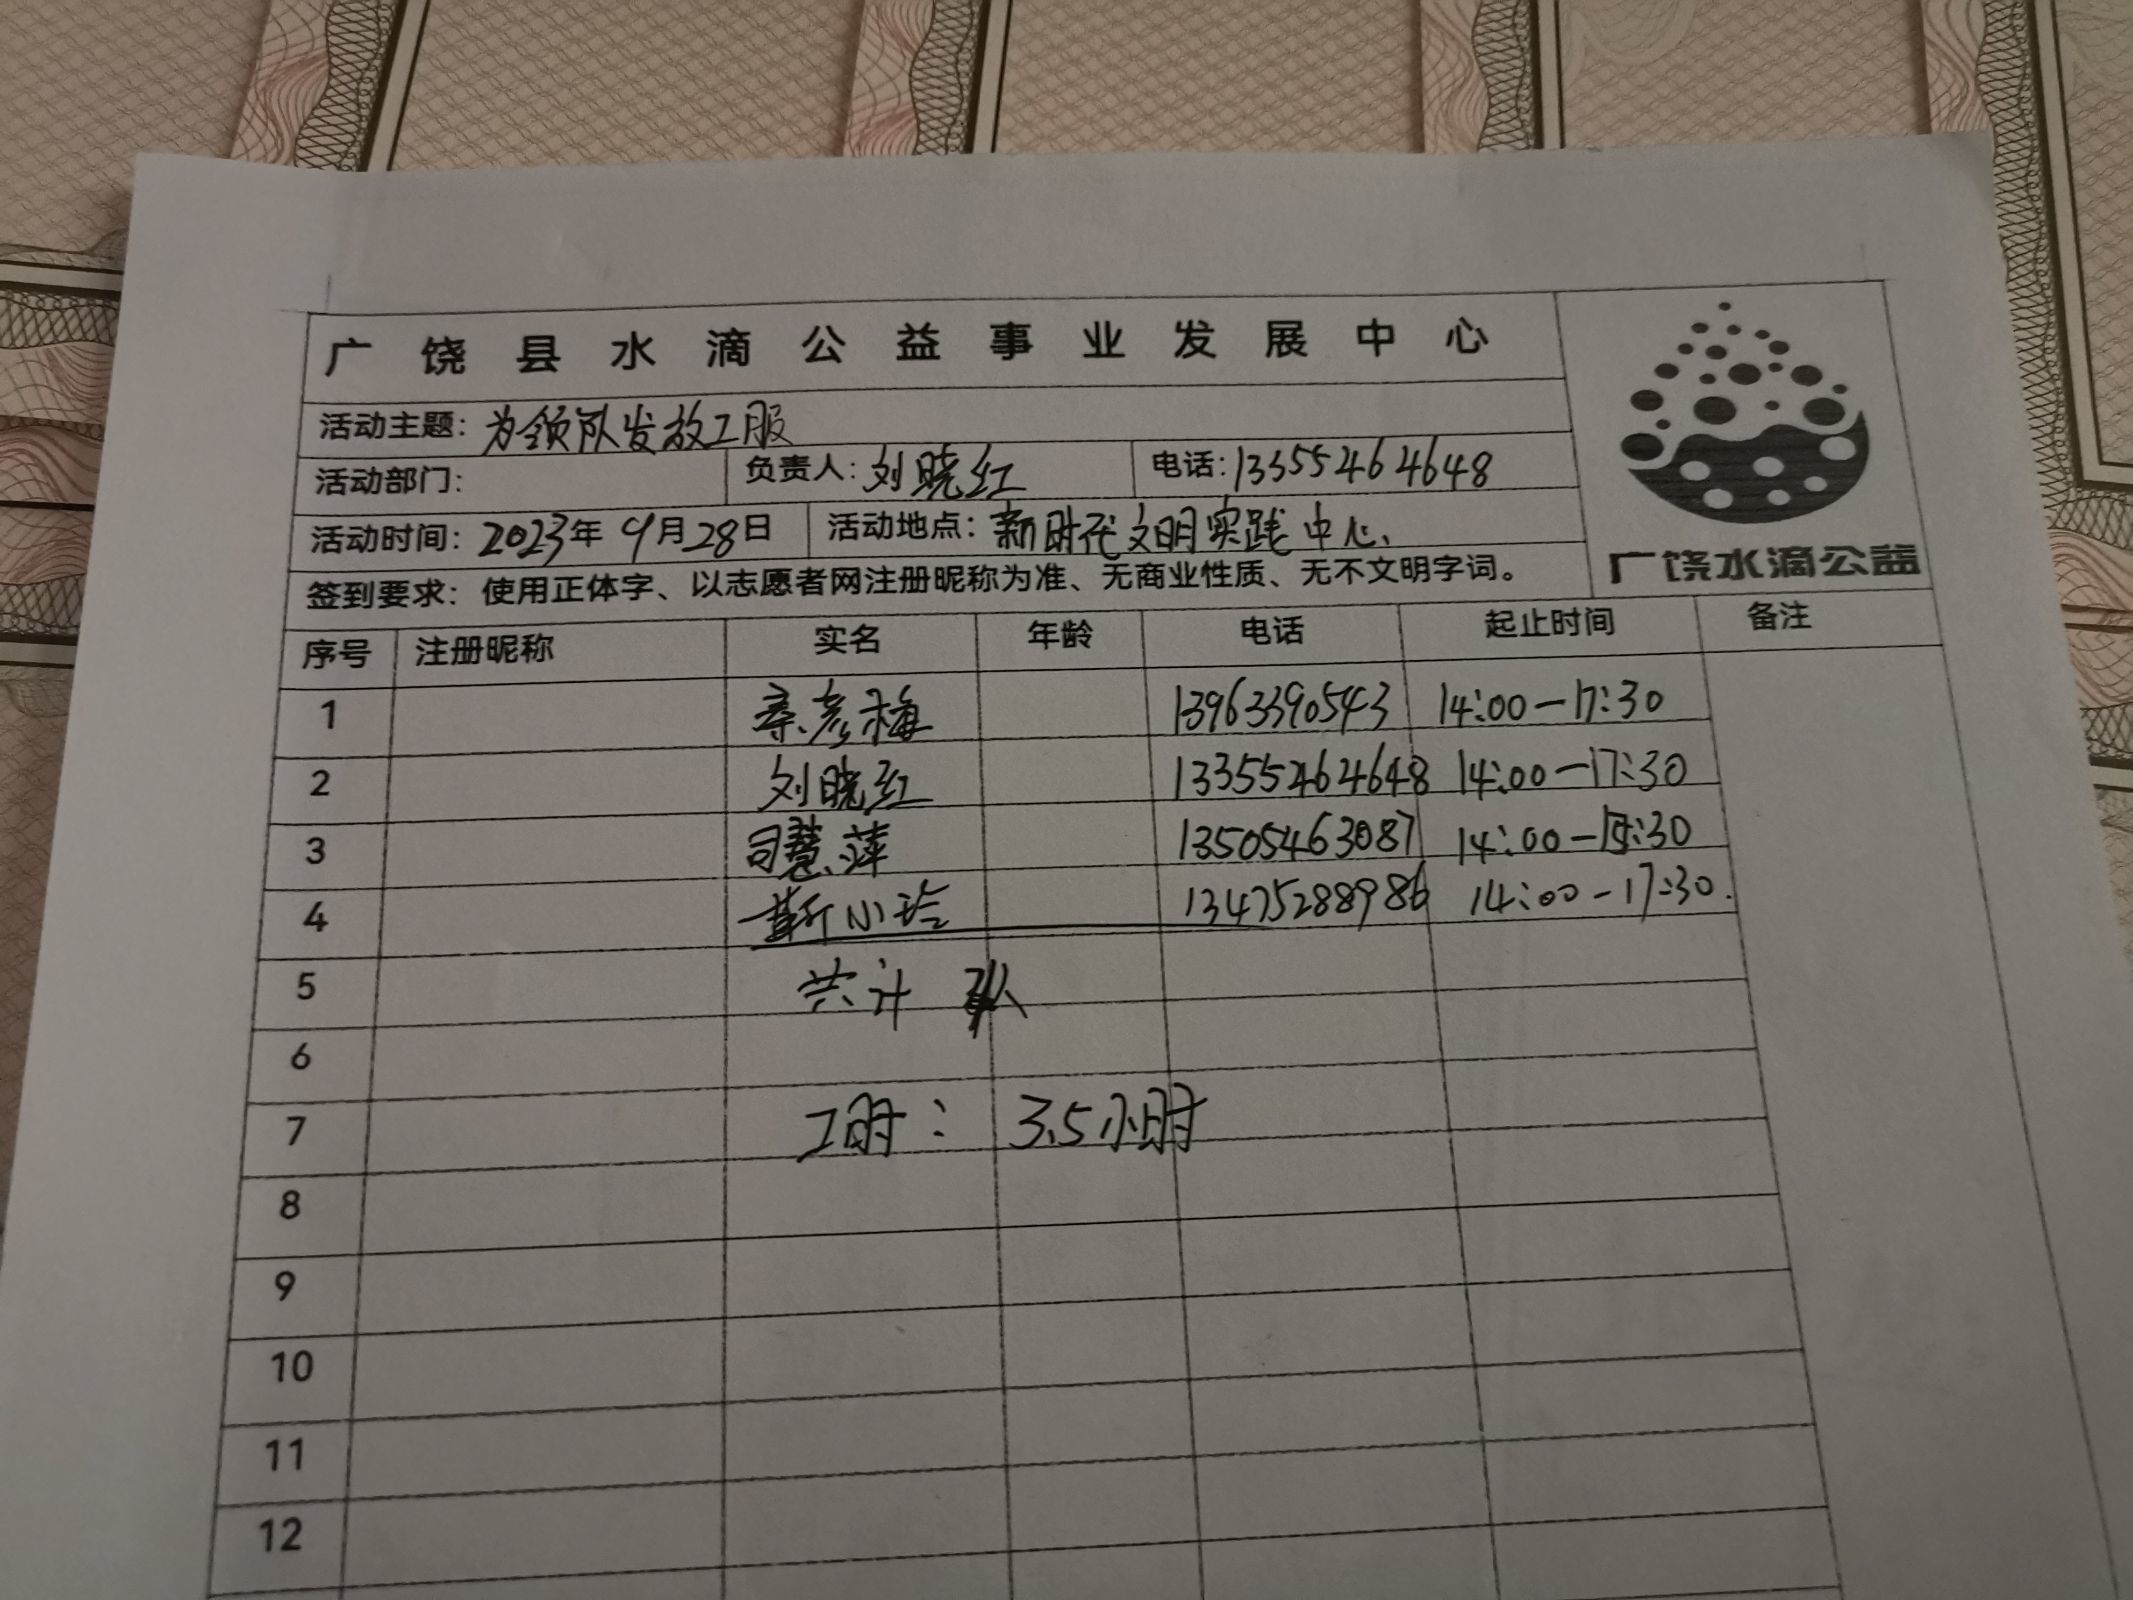 广饶县水滴公益事业发展中心
活动主题：为领队发放工服
活动部门： 负责人：刘晓红 电话：13355464648
活动时间：2023年9月28日 活动地点：新时代文明实践中心
广饶水滴公益
签到要求：使用正体字、以志愿者网注册昵称为准、无商业性质、无不文明字词。
序号 注册昵称 实名 年龄 电话 起止时间 备注
1 彦梅 13963390543 14:00-17:30
2 刘晓红 13355464648 14:00-17:30
3 司慧萍 13505463087 14:00-
4 靳小玲 13475288986 14:00-17:30.
5 共计 人
6
7 工时：3.5小时
8
9
10
11
12